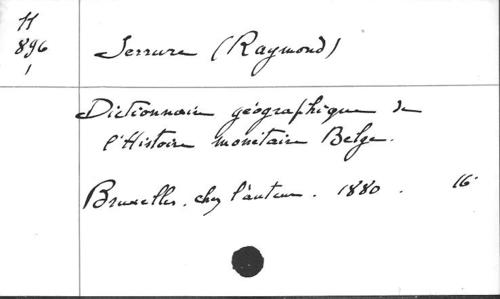 H
896
1
Serrure (Raymond)
Dictionnaire géographique de
l'Histoire monétaire Belge.
Bruxelles. chez l'auteur. 1880. 16°